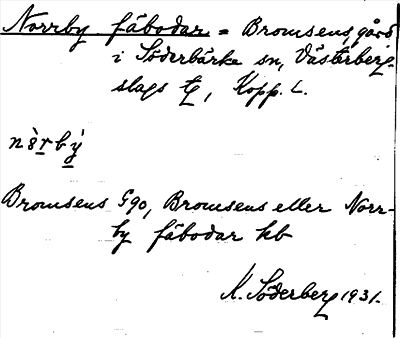 Norrby fäbodar = Bromsens gård
i Söderbärke sn, Västerbergs-
lags tg, Kopp. L.
nòrbý
Bromsens G90, Bromsens eller Norr-
by fäbodar kb
M. Söderberg 1931.